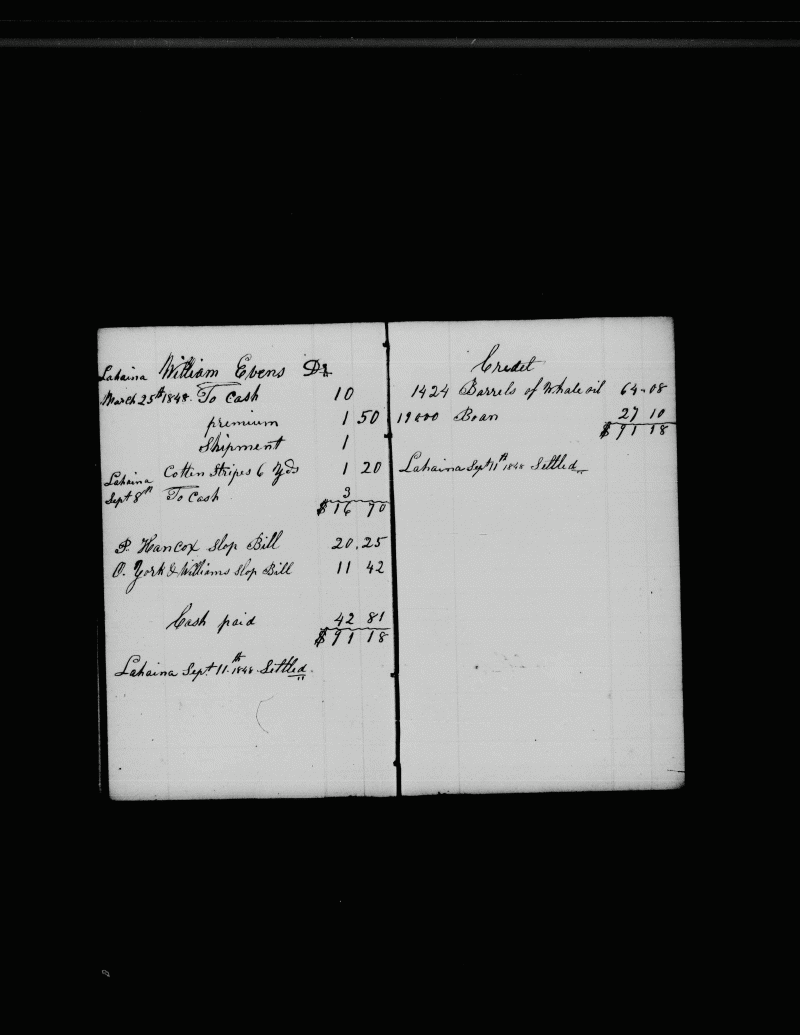 Lahaina William Evens Dr
March 25th 1848. To Cash 10
premium 1 50
Shipment 1
Lahaina Cotten Stripes 6 Yds 1 20
Sept 8th To Cash 3
$ 16 70
P. Hancox Slop Bill 20.25
O. York & Williams Slop Bill 11 42
Cash paid 42 81
$ 91 18
Lahaina Sept 11th 1848 Settled
Credet
1424 Barrels of Whale oil 64-08
19000 Boan 27 10
$ 91 18
Lahaina Sept 11th 1848 Settled